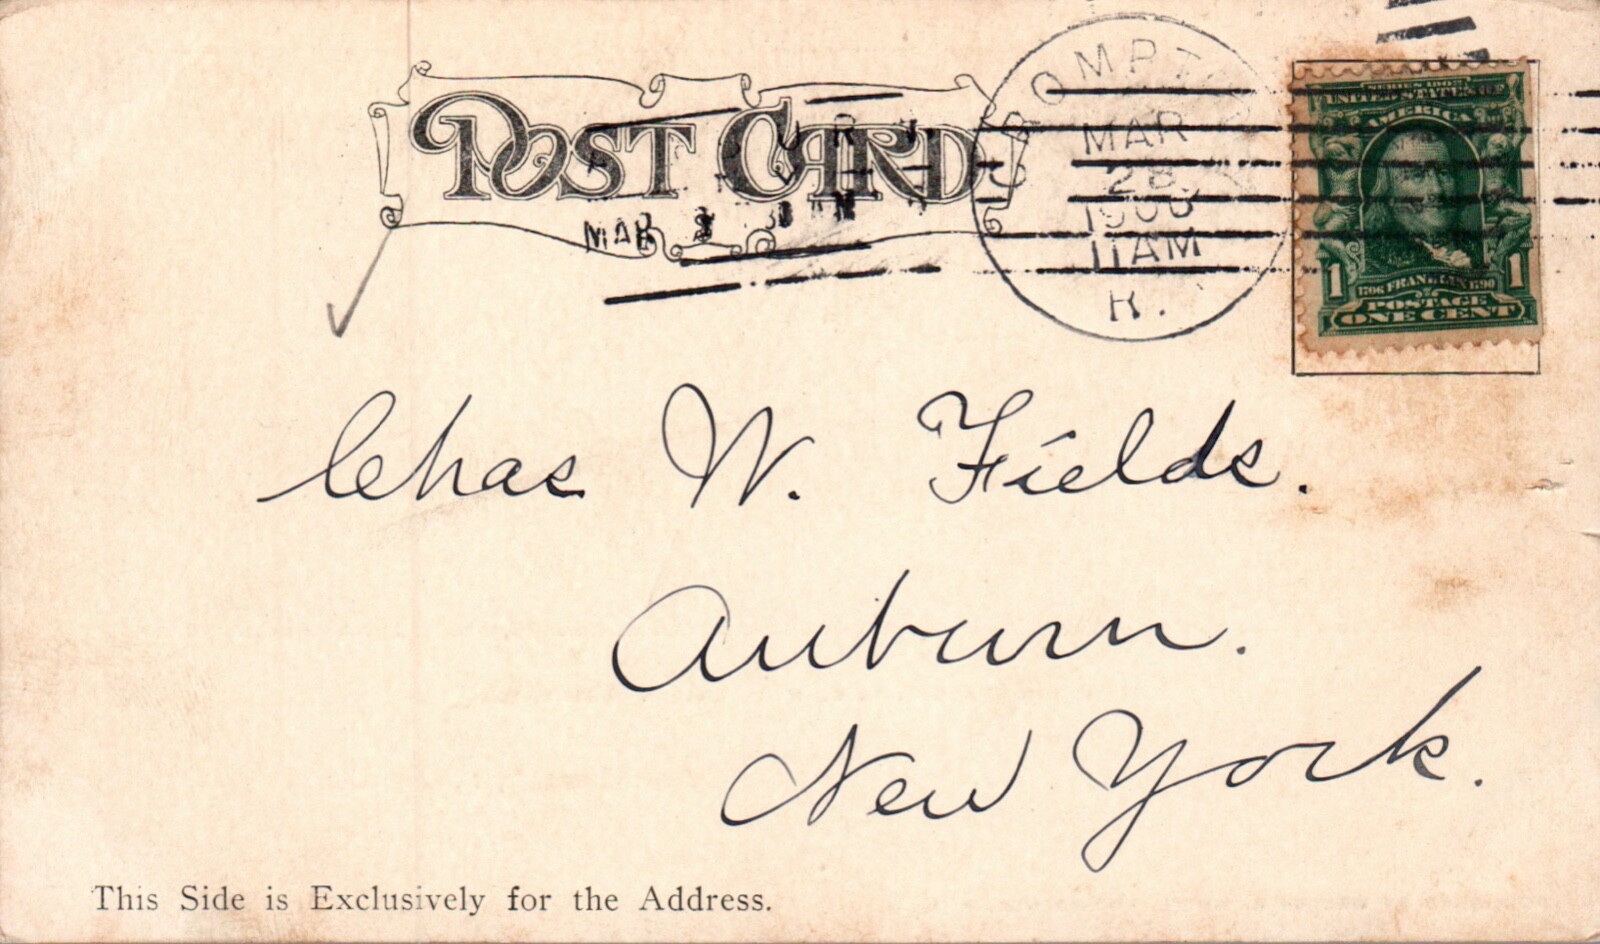 POST CARD
MAR
28
11AM
R.
MAR
UNITED STATES OF
AMERICA
1 1
1706 FRANKLIN 1790
POSTAGE
ONE CENT
Chas W. Fields.
Auburn.
New York.
This Side is Exclusively for the Address.